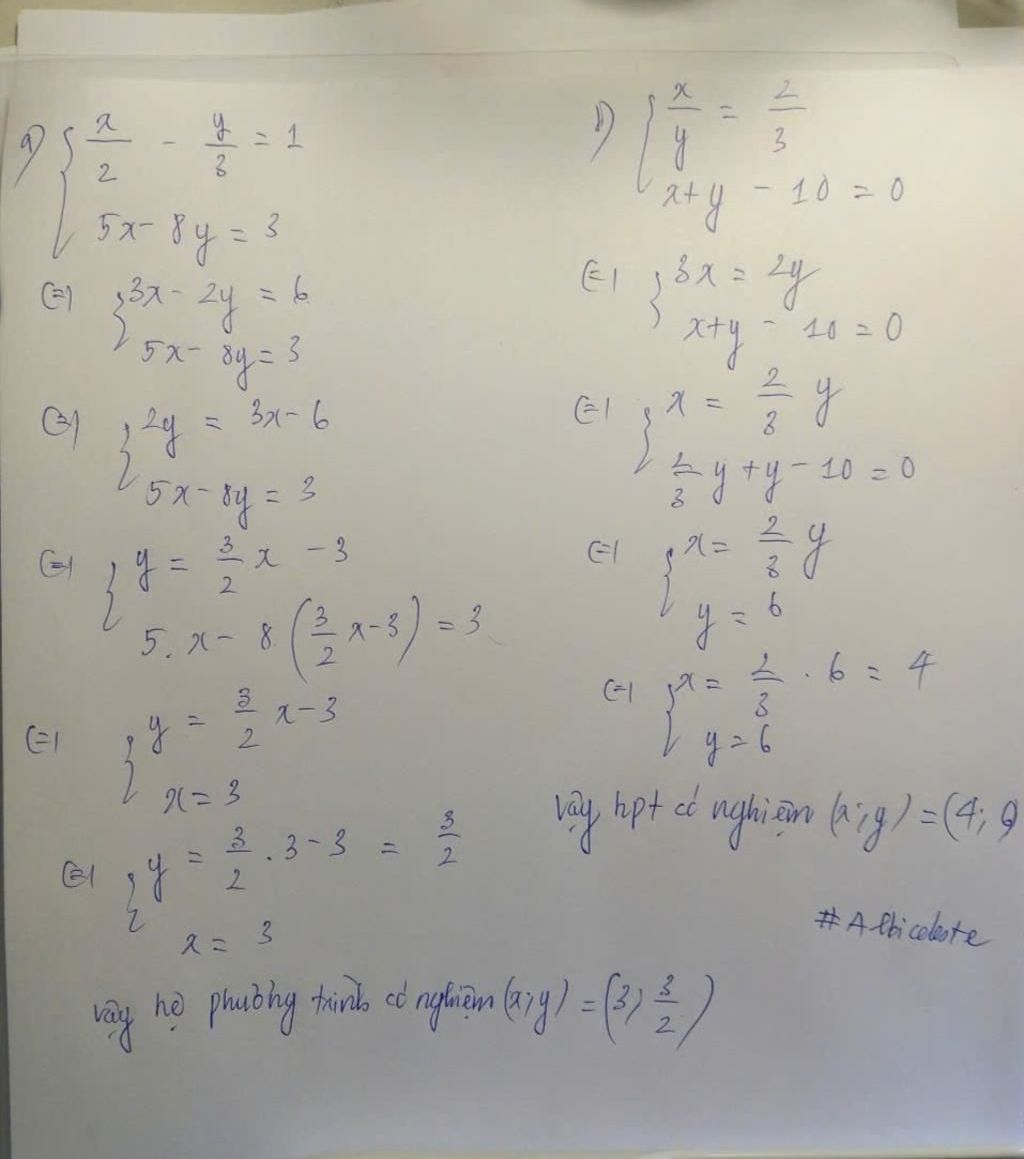 a) { x/2 - y/3 = 1
5x - 8y = 3
(=) { 3x - 2y = 6
5x - 8y = 3
(=) { 2y = 3x - 6
5x - 8y = 3
(=) { y = 3/2 x - 3
5. x - 8 (3/2 x - 3) = 3
(=) { y = 3/2 x - 3
x = 3
(=) { y = 3/2 . 3 - 3 = 3/2
x = 3
Vậy hệ phương trình có nghiệm (x;y) = (3; 3/2)
b) { x/y = 2/3
x + y - 10 = 0
(=) { 3x = 2y
x + y - 10 = 0
(=) { x = 2/3 y
2/3 y + y - 10 = 0
(=) { x = 2/3 y
y = 6
(=) { x = 2/3 . 6 = 4
y = 6
Vậy hpt có nghiệm (x;y) = (4; 6)
# Albiceleste